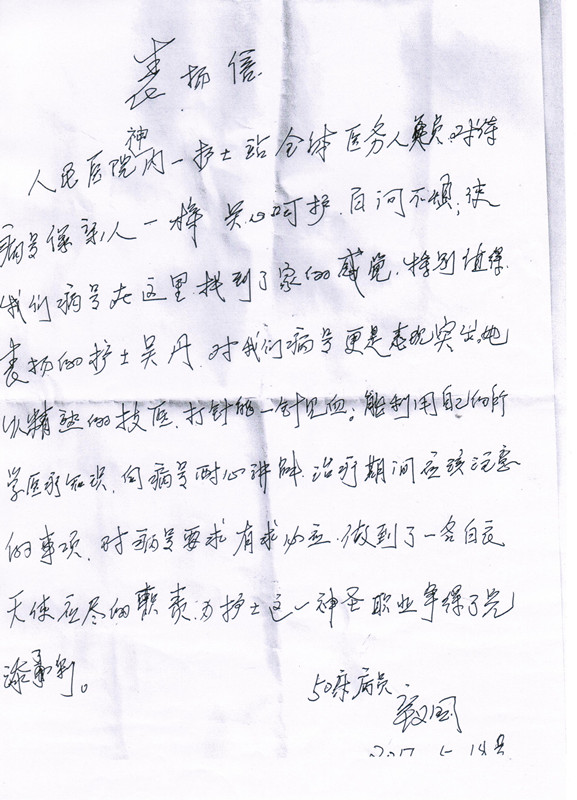 表扬信
人民医院神内一护士站全体医务人员。对待
病号像亲人一样 关心呵护.百问不烦;使
我们病号在这里.找到了家的感觉.特别值得
表扬的护士吴丹.对我们病号更是表现突出.她
以精熟的技医.打针能一针见血。能利用自己的所
学医疗知识.向病号耐心讲解.治疗期间应该注意
的事项.对病号要求有求必应.做到了一名白衣
天使应尽的职责.为护士这一神圣职业争得了光
添了彩。
50床病员.
2017